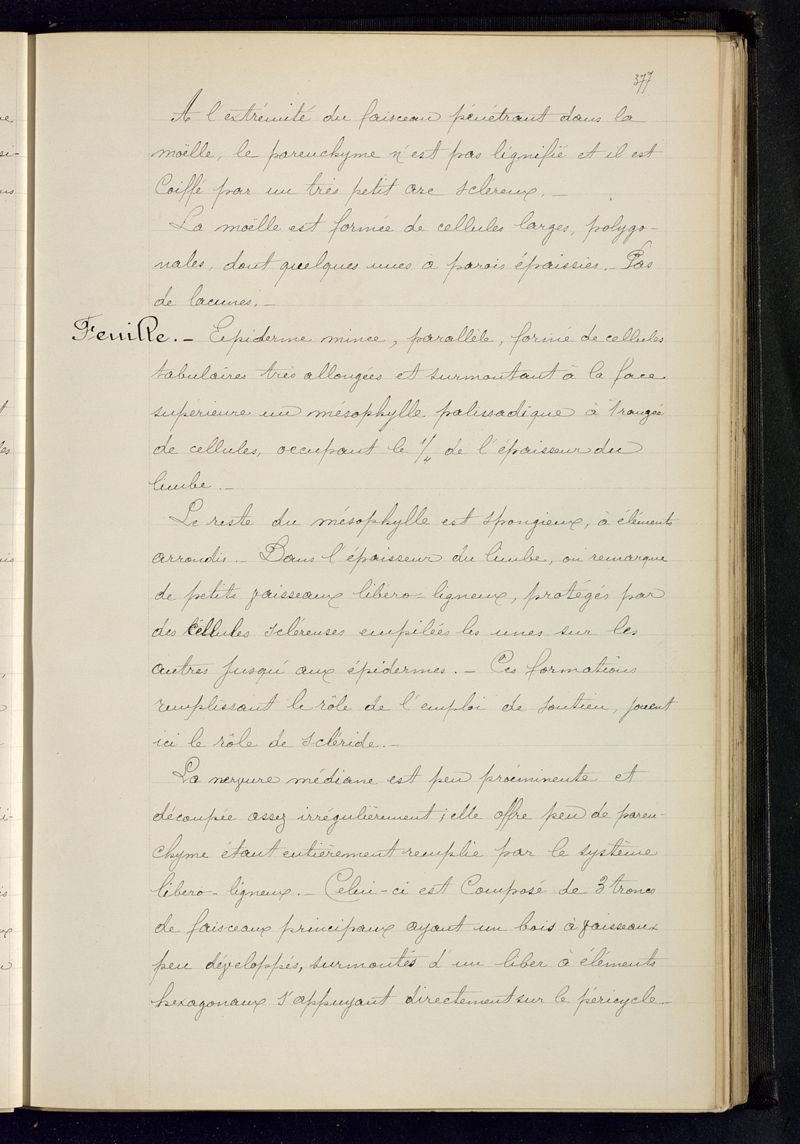 377
A l'extrémité du faisceau pénétrant dans la
moëlle, le parenchyme n'est pas lignifié et il est
Coiffé par un très petit arc scléreux. —
La moëlle est formée de cellules larges, polygo-
nales, dont quelques unes à parois épaissies. Pas
de lacunes. —
Feuille. — Epiderme mince, parallèle, formé de cellules
tabulaires très allongées et surmontant à la face
supérieure un mésophylle palissadique à 1 rangée
de cellules, occupant le 1/4 de l'épaisseur du
limbe. —
Le reste du mésophylle est spongieux, à éléments
arrondis. — Dans l'épaisseur du limbe, on remarque
de petits vaisseaux libéro-ligneux, protégés par
des Cellules scléreuses empilées les unes sur les
autres jusqu'aux épidermes. — Ces formations
remplissant le rôle de l'emploi de soutien, jouent
ici le rôle de scléride. —
La nervure médiane est peu proéminente et
découpée assez irrégulièrement; elle offre peu de paren-
chyme étant entièrement remplie par le système
libero-ligneux. — Celui-ci est Composé de 3 troncs
de faisceaux principaux ayant un bois à vaisseaux
peu développés, surmontés d'un liber à éléments
hexagonaux s'appuyant directement sur le péricycle